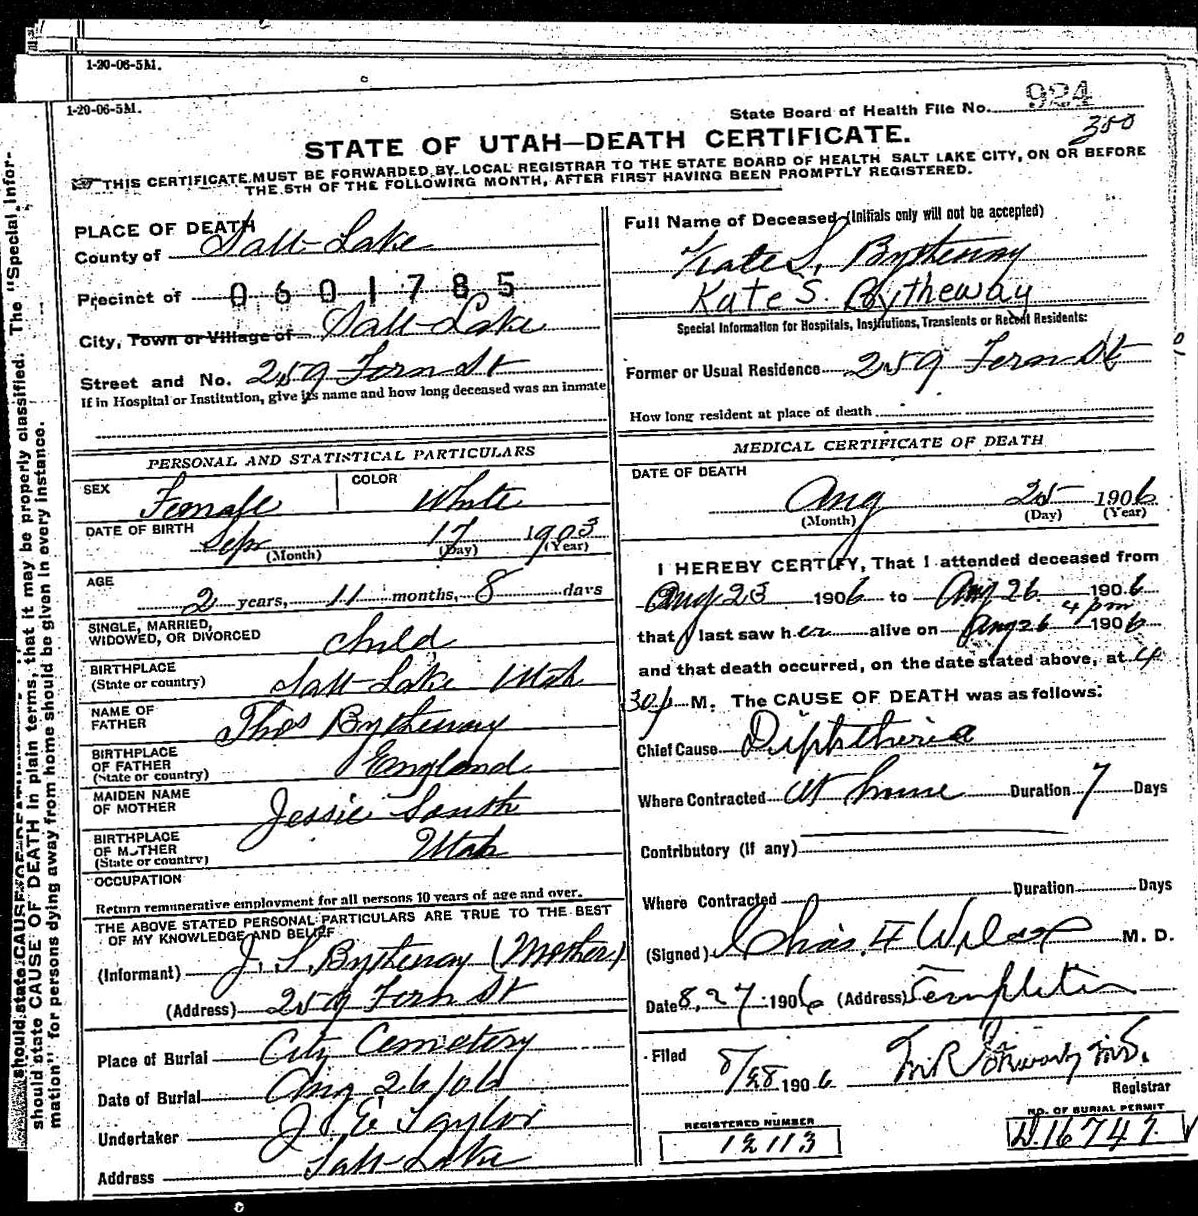 1-20-06-5M.
1-20-06-5M.
State Board of Health File No. 924
350
STATE OF UTAH—DEATH CERTIFICATE.
THIS CERTIFICATE MUST BE FORWARDED BY LOCAL REGISTRAR TO THE STATE BOARD OF HEALTH SALT LAKE CITY, ON OR BEFORE
THE 5TH OF THE FOLLOWING MONTH, AFTER FIRST HAVING BEEN PROMPTLY REGISTERED.
PLACE OF DEATH
County of Salt Lake
Precinct of 0601785
City, Town or Village of Salt Lake
Street and No. 259 Fern St
If in Hospital or Institution, give its name and how long deceased was an inmate
PERSONAL AND STATISTICAL PARTICULARS
SEX Female COLOR White
DATE OF BIRTH Sep 17 1903
(Month) (Day) (Year)
AGE 2 years, 11 months, 8 days
SINGLE, MARRIED,
WIDOWED, OR DIVORCED child
BIRTHPLACE
(State or country) Salt Lake Utah
NAME OF
FATHER Thos Bytheway
BIRTHPLACE
OF FATHER
(State or country) England
MAIDEN NAME
OF MOTHER Jessie South
BIRTHPLACE
OF MOTHER
(State or country) Utah
OCCUPATION
Return remunerative employment for all persons 10 years of age and over.
THE ABOVE STATED PERSONAL PARTICULARS ARE TRUE TO THE BEST
OF MY KNOWLEDGE AND BELIEF
(Informant) J. S. Bytheway (Mother)
(Address) 259 Fern St
Place of Burial City Cemetery
Date of Burial Aug 26/06
Undertaker J E Taylor
Address Salt Lake
Full Name of Deceased (Initials only will not be accepted)
Kate S. Bytheway
Kate S. Bytheway
Special Information for Hospitals, Institutions, Transients or Recent Residents:
Former or Usual Residence 259 Fern St
How long resident at place of death
MEDICAL CERTIFICATE OF DEATH
DATE OF DEATH
Aug 25 1906
(Month) (Day) (Year)
I HEREBY CERTIFY, That I attended deceased from
Aug 23 1906 to Aug 26 1906
that I last saw her alive on Aug 26 4 pm 1906
and that death occurred, on the date stated above, at 4
30 p M. The CAUSE OF DEATH was as follows:
Chief Cause Diphtheria
Where Contracted at home Duration 7 Days
Contributory (If any)
Where Contracted Duration Days
(Signed) Chas. F Wilcox M. D.
Date 8,27 1906 (Address) Templeton
Filed 8/28 1906 M.D.
Registrar
REGISTERED NUMBER
12113
NO. OF BURIAL PERMIT
D.16747.
should state CAUSE OF DEATH in plain terms, that it may be properly classified. The "Special Infor-
mation" for persons dying away from home should be given in every instance.